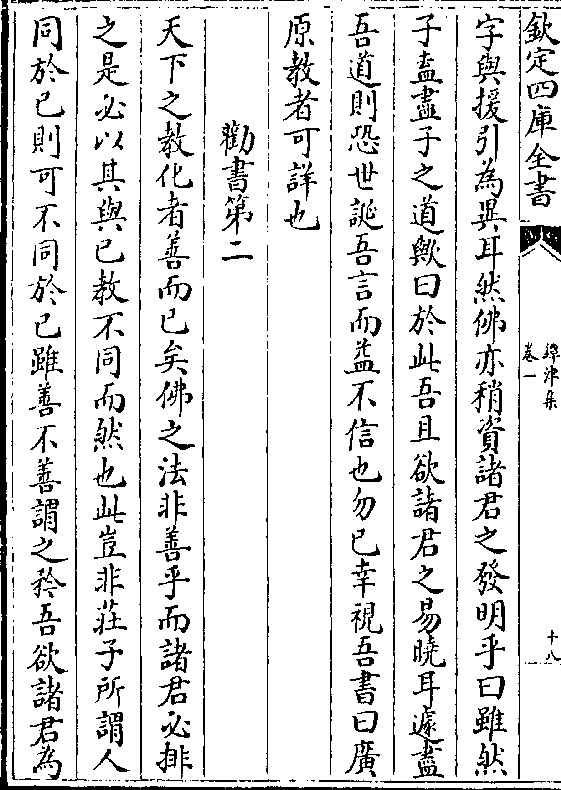 欽定四庫全書
鐔津集
卷一
十八
字與援引為異耳然佛亦稍資諸君之發明乎曰雖然
子盍盡子之道歟曰於此吾且欲諸君之易曉耳遽盡
吾道則恐世誕吾言而益不信也勿已幸視吾書曰廣
原教者可詳也
勸書第二
天下之教化者善而已矣佛之法非善乎而諸君必排
之是必以其與已教不同而然也此豈非莊子所謂人
同於已則可不同於已雖善不善謂之矜吾欲諸君為